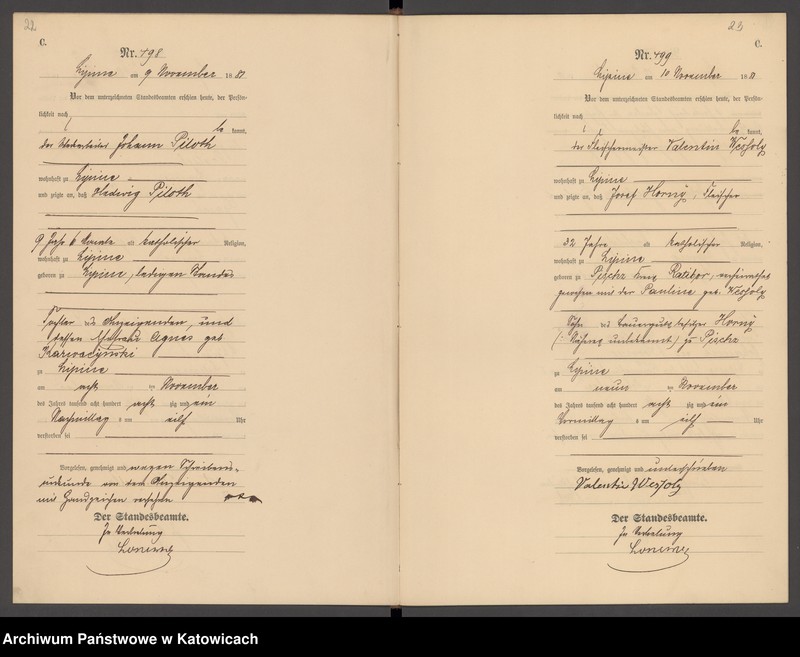 22
C.
Nr. 498
Lipine am 9 November 1881
Vor dem unterzeichneten Standesbeamten erschien heute, der Persön-
lichkeit nach
be kannt,
der Johann Piloth
wohnhaft zu Lipine
und zeigte an, daß Hedwig Piloth
9 Jahr 6 Monate alt katholischer Religion,
wohnhaft zu Lipine
geboren zu Lipine, ledigen Standes
Tochter des Anzeigenden, und
dessen Ehefrau Agnes geb
zu Lipine
am acht ten November
des Jahres tausend acht hundert acht zig und ein
Nachmittag s um eilf Uhr
verstorben sei
Vorgelesen, genehmigt und wegen Schreibens-
unkunde von dem Anzeigenden
mit Handzeichen versehen +++
Der Standesbeamte.
In Vertretung
23
C.
Nr. 499
Lipine am 10 November 1881
Vor dem unterzeichneten Standesbeamten erschien heute, der Persön-
lichkeit nach
be kannt,
der Fleischermeister Valentin Wessoly
wohnhaft zu Lipine
und zeigte an, daß Josef Horny, Fleischer
32 Jahre alt katholischer Religion,
wohnhaft zu Lipine
geboren zu Kreis Ratibor, verheirathet
gewesen mit der Pauline geb. Wessoly
Sohn des Bauergutsbesitzer Horny
zu
zu Lipine
am neun ten November
des Jahres tausend acht hundert acht zig und ein
Vormittag s um eilf Uhr
verstorben sei
Vorgelesen, genehmigt und unterschrieben
Valentin Wessoly
Der Standesbeamte.
In Vertretung
Archiwum Państwowe w Katowicach